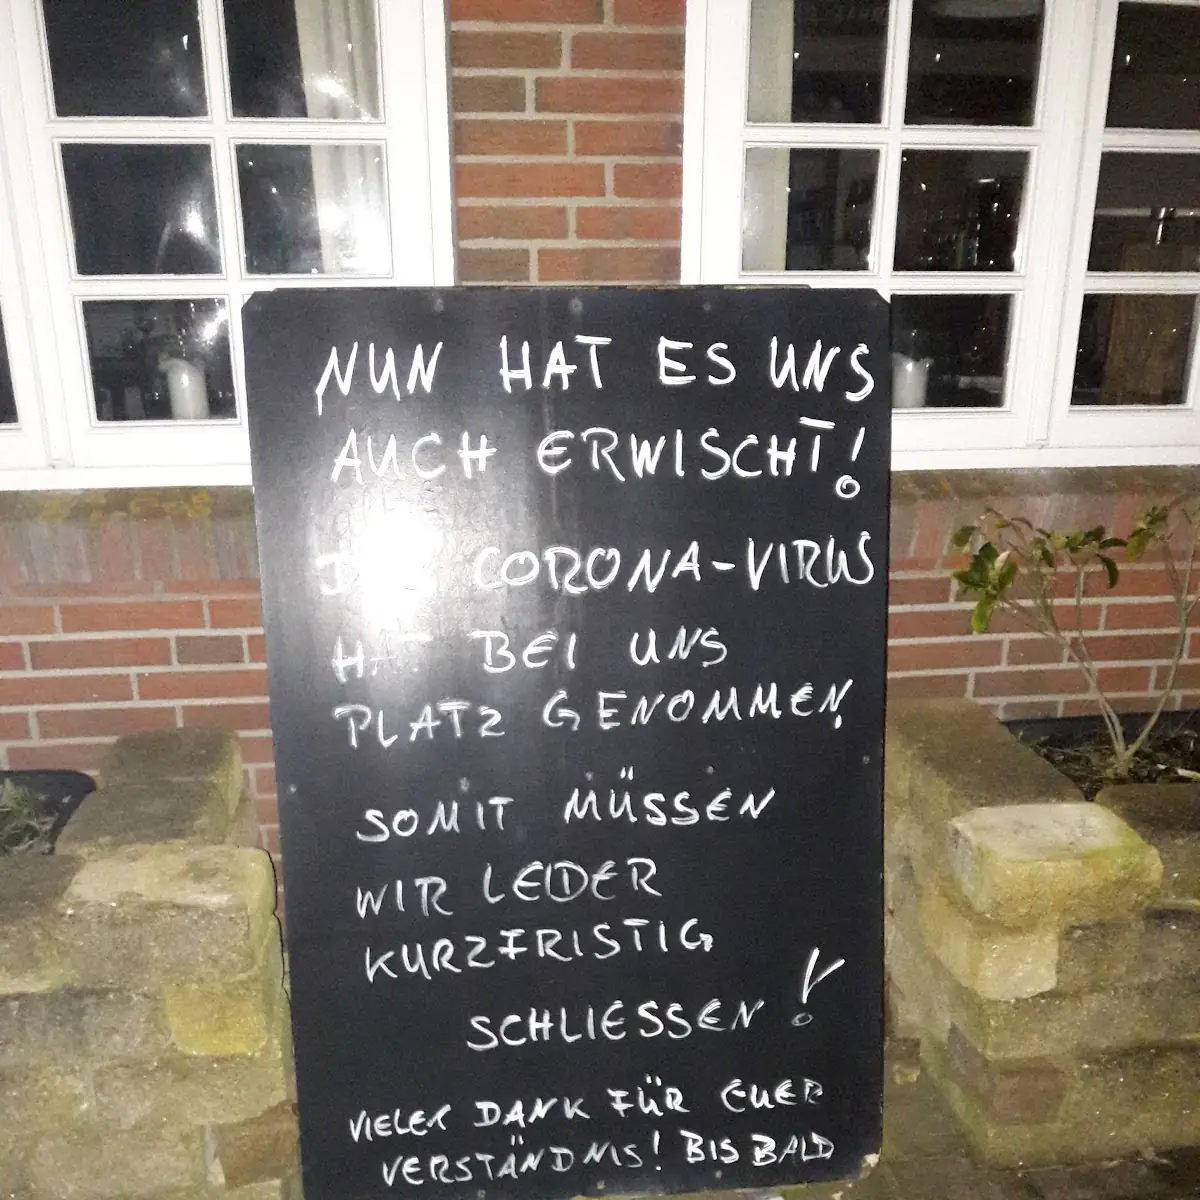 NUN HAT ES UNS
AUCH ERWISCHT!
DAS CORONA-VIRUS
HAT BEI UNS
PLATZ GENOMMEN!
SOMIT MÜSSEN
WIR LEIDER
KURZFRISTIG
SCHLIESSEN!
VIELEN DANK FÜR EUER
VERSTÄNDNIS! BIS BALD